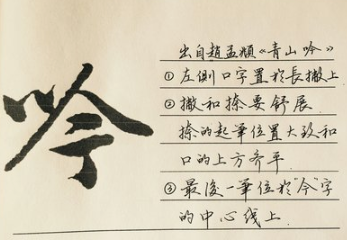 吟
出自趙孟頫《青山吟》
①左側口字置於長撇上
②撇和捺要舒展
捺的起筆位置大致和
口的上方齐平
③最後一筆位於"今"字
的中心线上